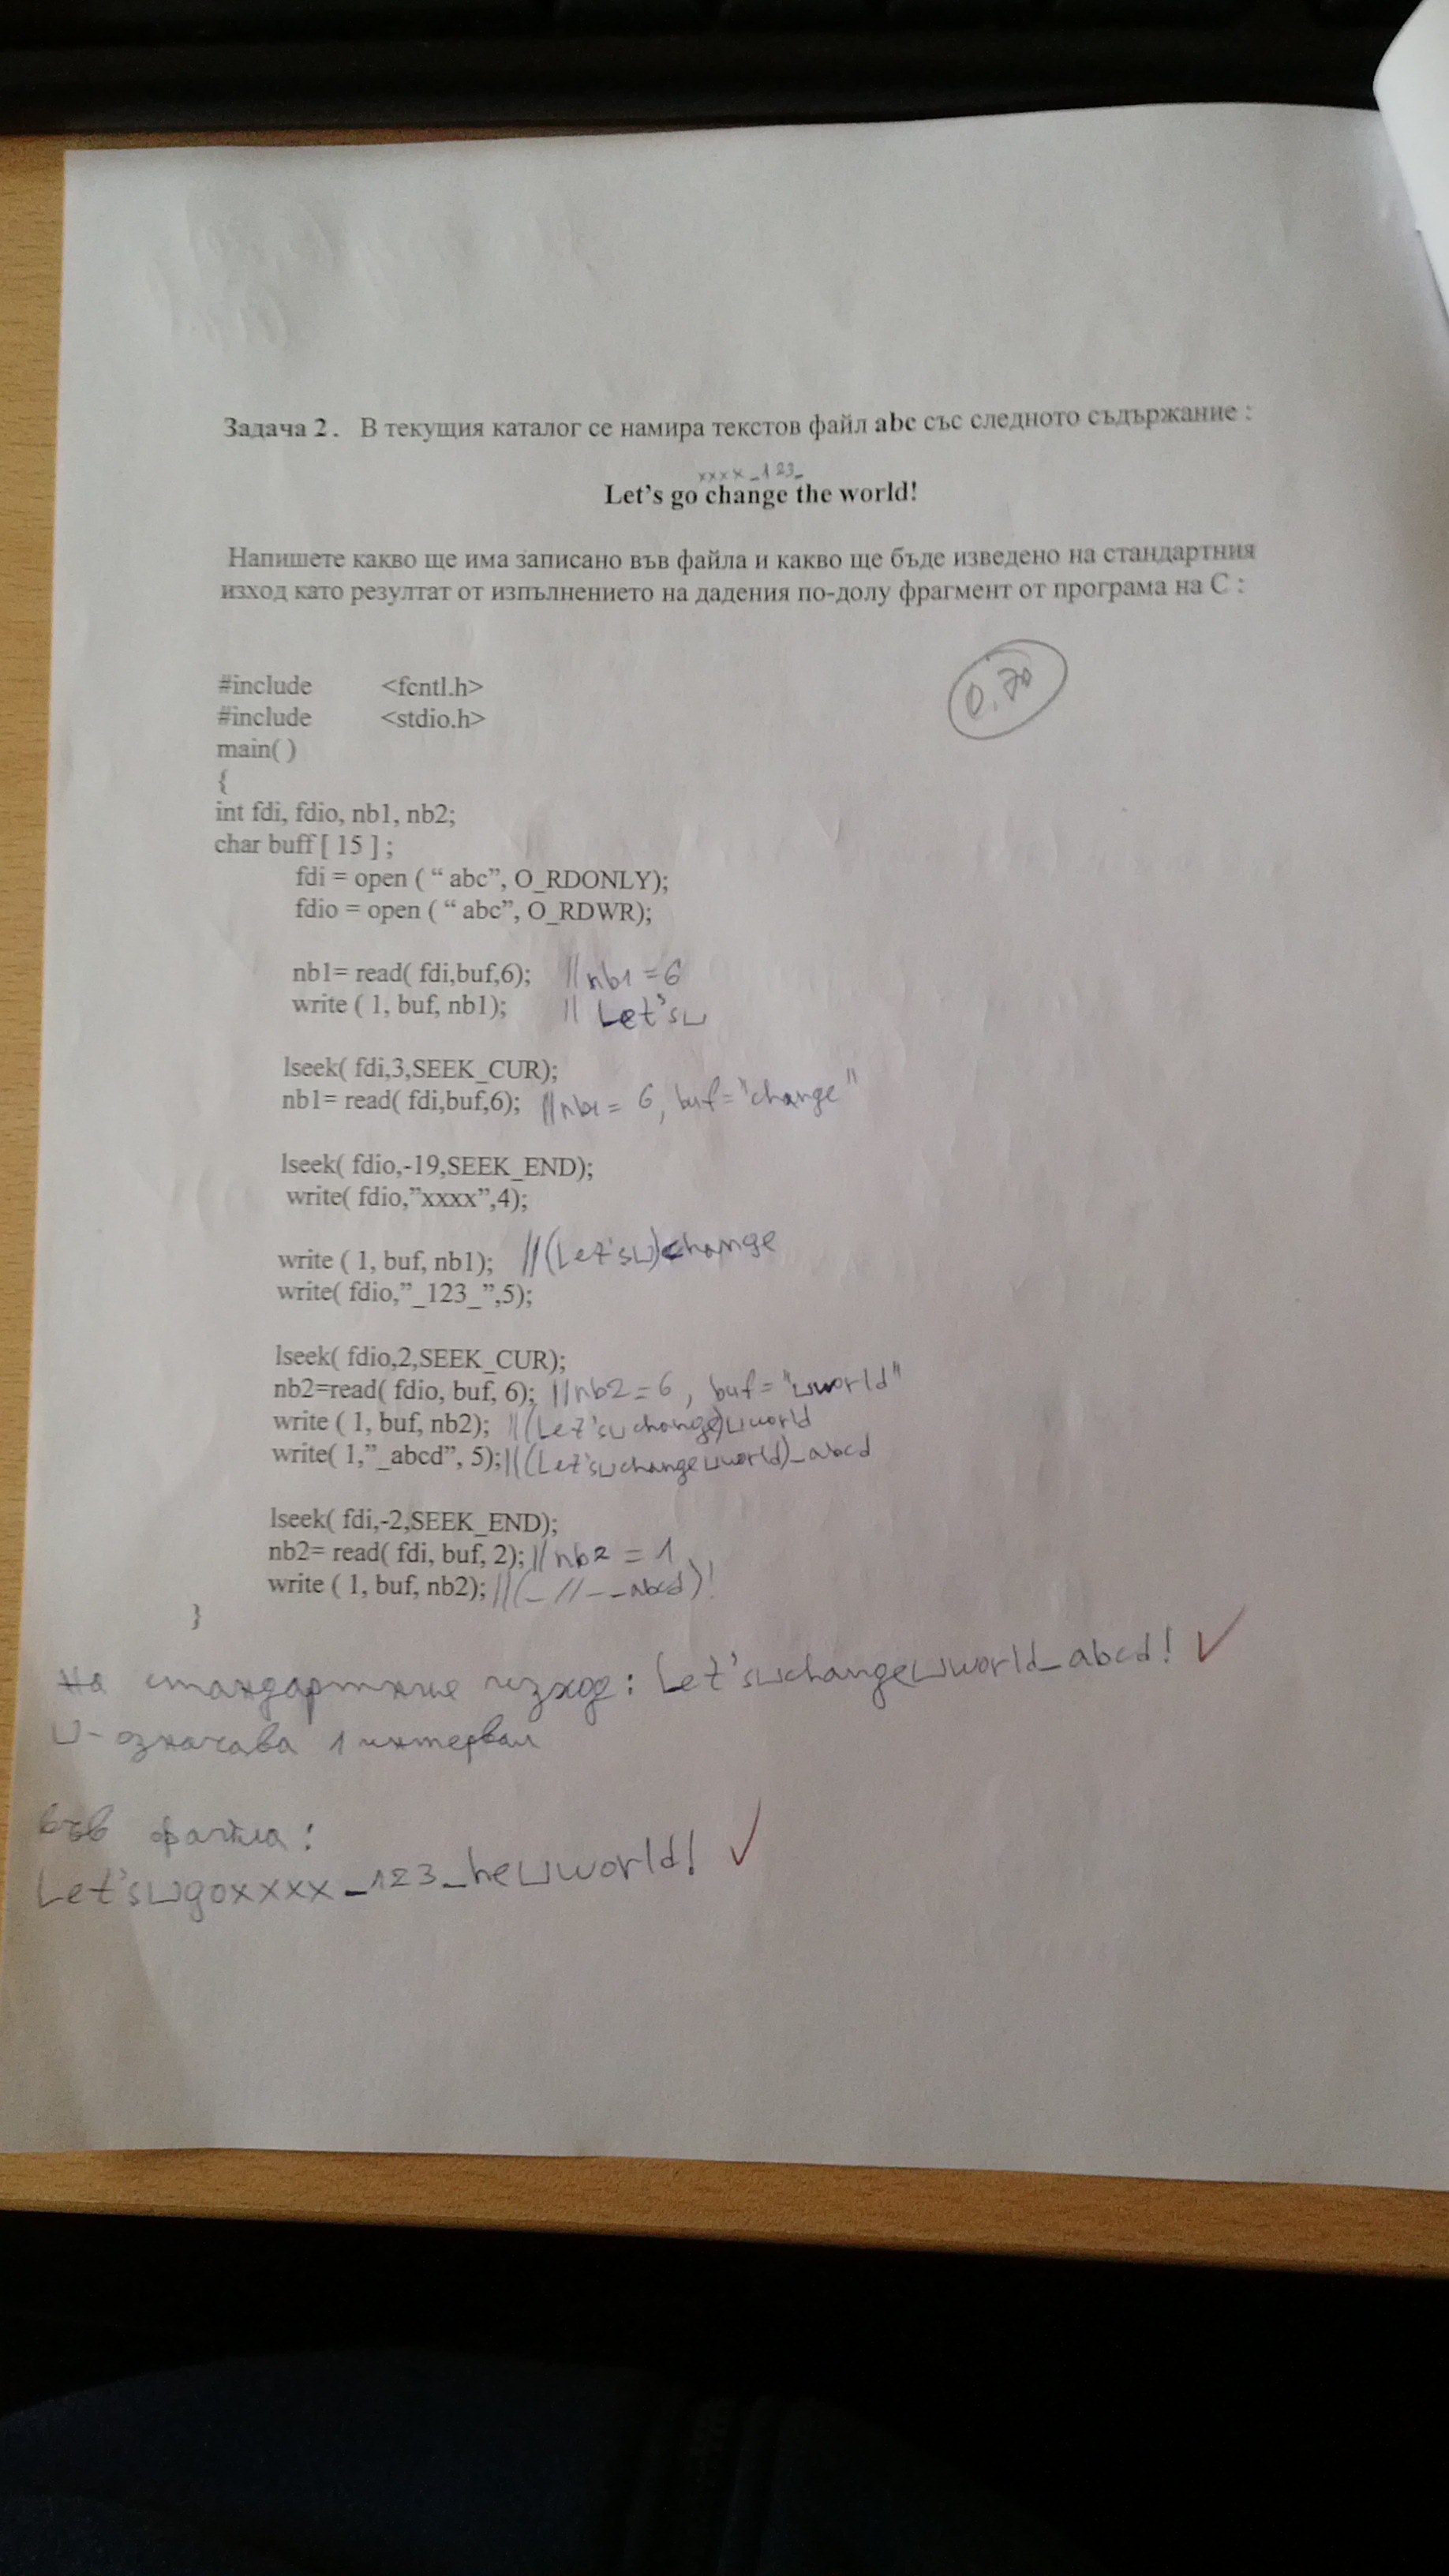 Задача 2. В текущия каталог се намира текстов файл abc със следното съдържание :
xxxx_123_
Let's go change the world!
Напишете какво ще има записано във файла и какво ще бъде изведено на стандартния
изход като резултат от изпълнението на дадения по-долу фрагмент от програма на С :
0,70
#include <fcntl.h>
#include <stdio.h>
main( )
{
int fdi, fdio, nb1, nb2;
char buff [ 15 ] ;
fdi = open ( “ abc”, O_RDONLY);
fdio = open ( “ abc”, O_RDWR);
nb1= read( fdi,buf,6); //nb1 = 6
write ( 1, buf, nb1); // Let's␣
lseek( fdi,3,SEEK_CUR);
nb1= read( fdi,buf,6); //nb1 = 6, buf="change"
lseek( fdio,-19,SEEK_END);
write( fdio,”xxxx”,4);
write ( 1, buf, nb1); //(Let's␣)change
write( fdio,”_123_”,5);
lseek( fdio,2,SEEK_CUR);
nb2=read( fdio, buf, 6); //nb2=6, buf="␣world"
write ( 1, buf, nb2); //(Let's␣change)␣world
write( 1,”_abcd”, 5);//(Let's␣change␣world)_abcd
lseek( fdi,-2,SEEK_END);
nb2= read( fdi, buf, 2); //nb2 = 1
write ( 1, buf, nb2); //(_ // _ _abcd)!
}
на стандартния изход: Let's␣change␣world_abcd! ✓
␣- означава 1 интервал
във файла:
Let's␣goxxxx_123_he␣world! ✓